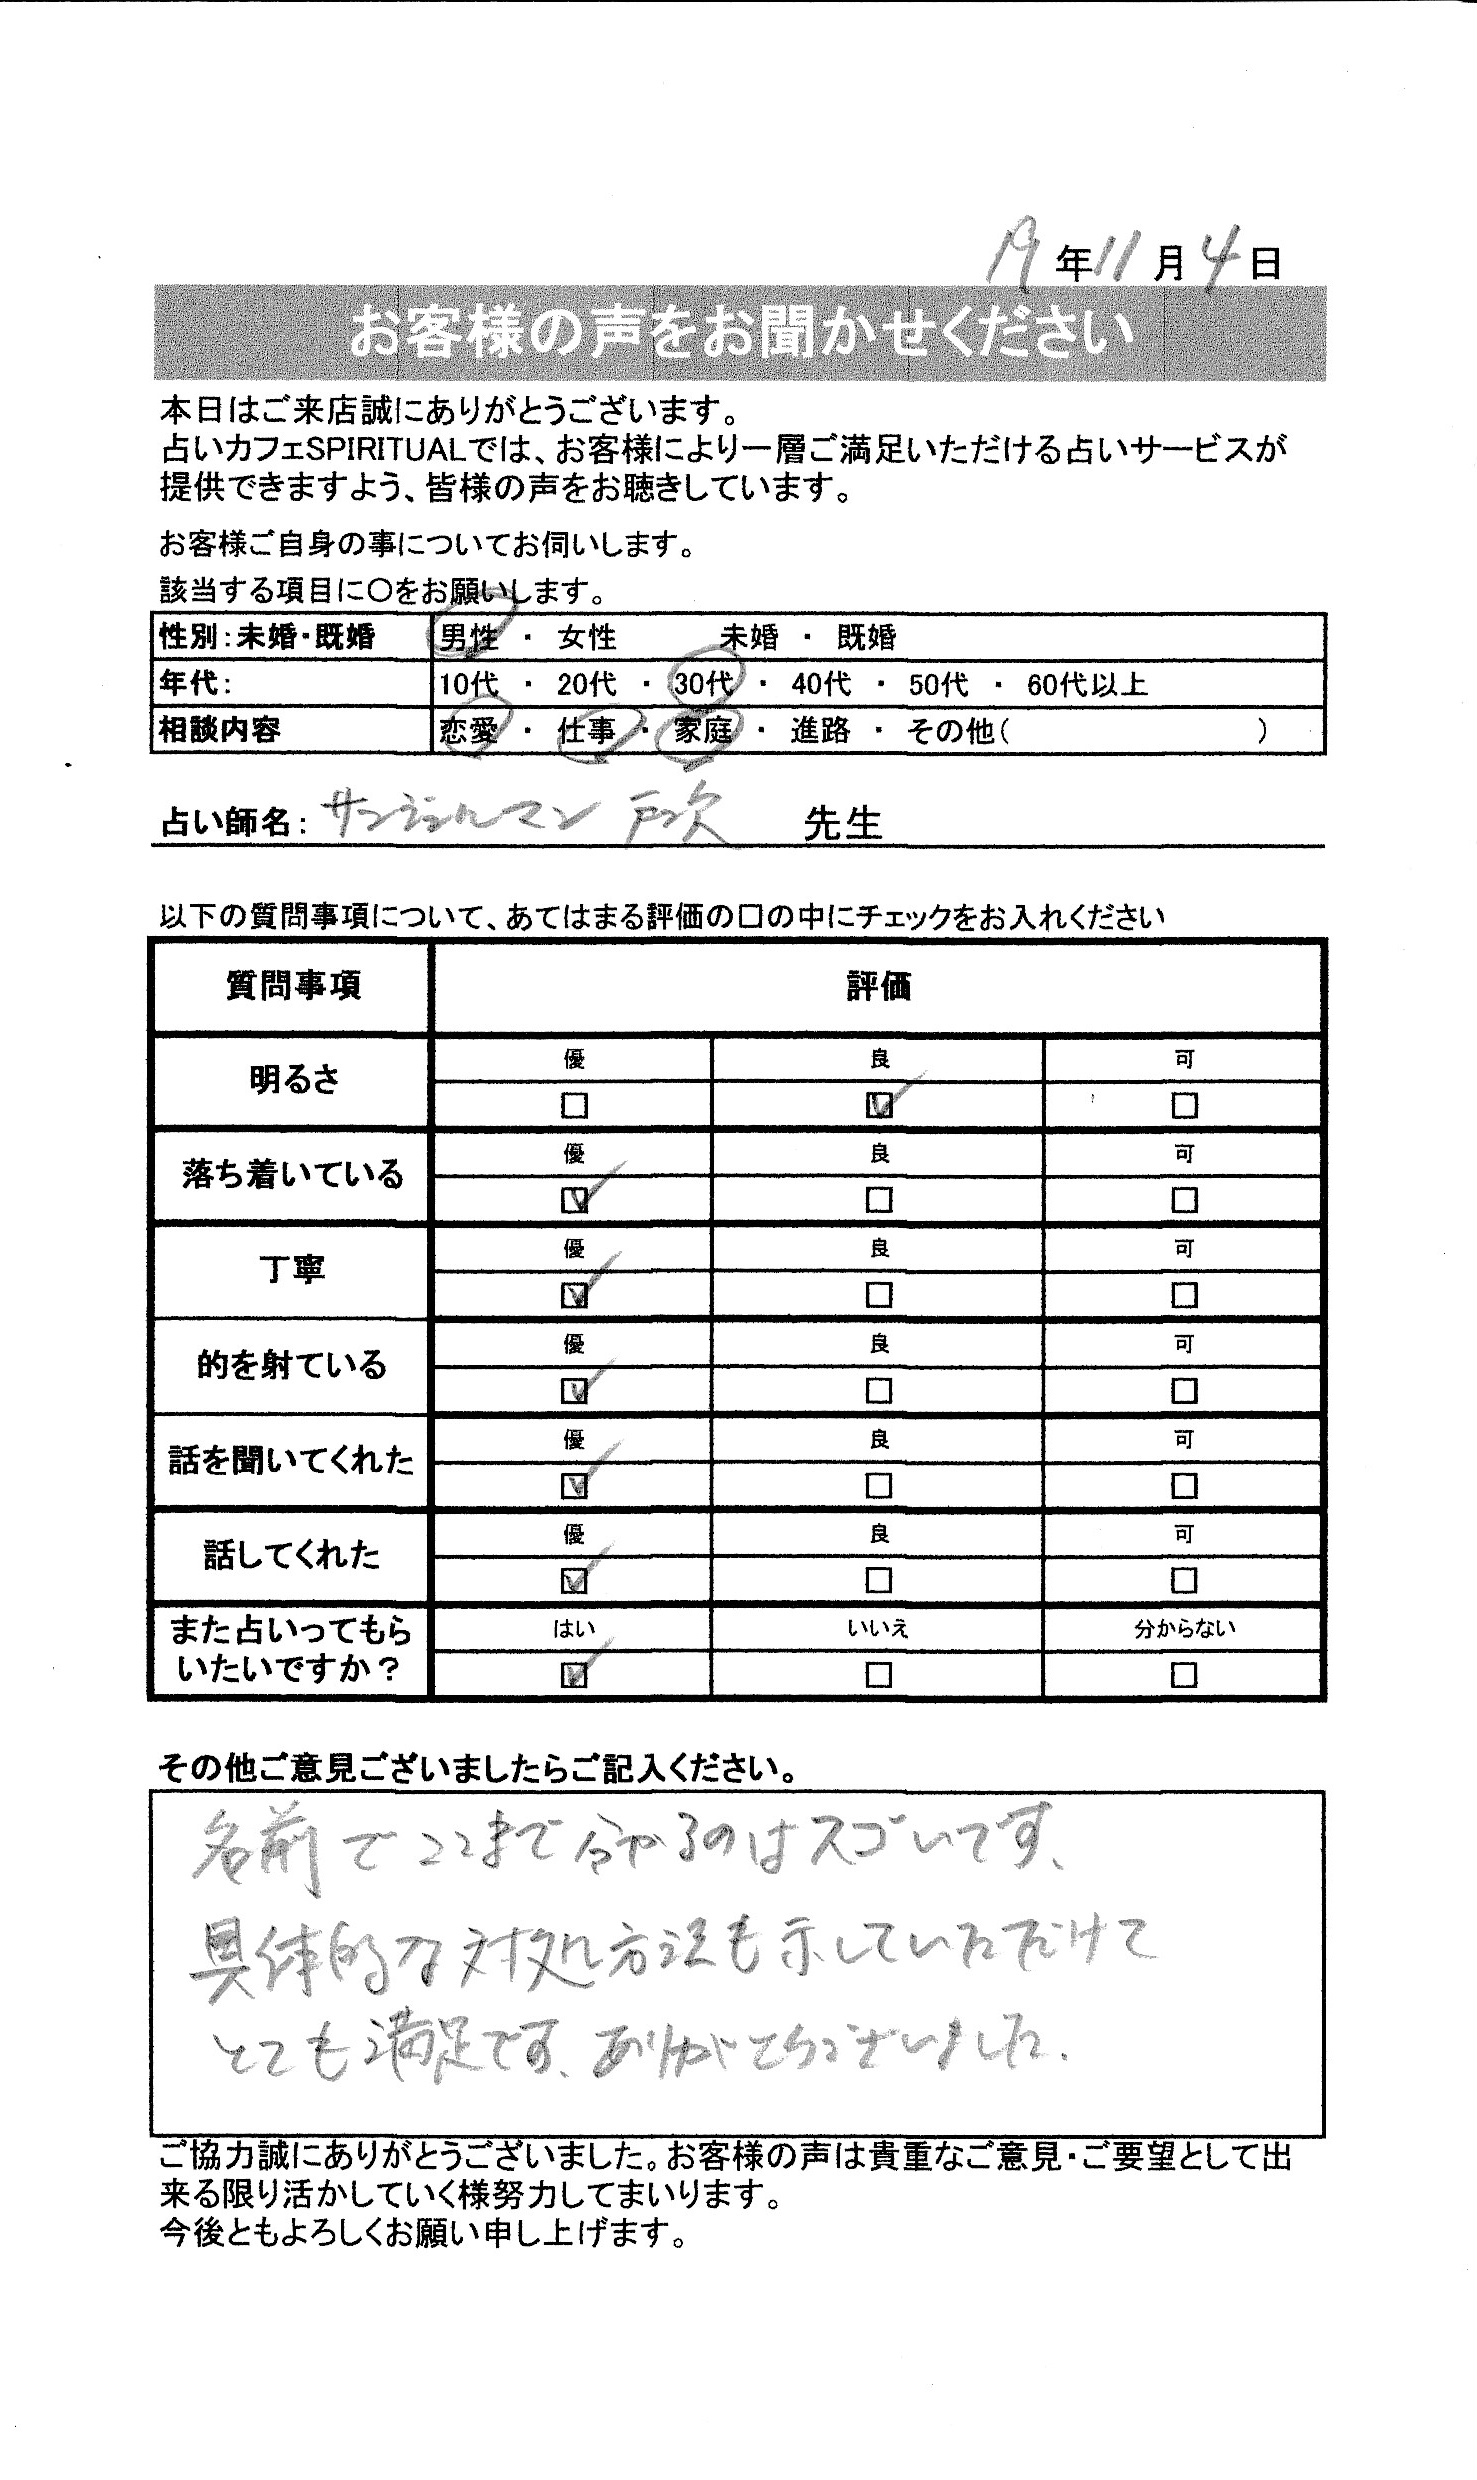 19年11月4日
お客様の声をお聞かせください
本日はご来店誠にありがとうございます。
占いカフェSPIRITUALでは、お客様により一層ご満足いただける占いサービスが
提供できますよう、皆様の声をお聴きしています。
お客様ご自身の事についてお伺いします。
該当する項目に〇をお願いします。
性別:未婚・既婚 男性 ・ 女性 未婚 ・ 既婚
年代: 10代 ・ 20代 ・ 30代 ・ 40代 ・ 50代 ・ 60代以上
相談内容 恋愛 ・ 仕事 ・ 家庭 ・ 進路 ・ その他( )
占い師名: サンジェルマン 戸次 先生
以下の質問事項について、あてはまる評価の口の中にチェックをお入れください
質問事項 評価
明るさ 優 良 可
□ ☑ □
落ち着いている 優 良 可
☑ □ □
丁寧 優 良 可
☑ □ □
的を射ている 優 良 可
☑ □ □
話を聞いてくれた 優 良 可
☑ □ □
話してくれた 優 良 可
☑ □ □
また占いってもら はい いいえ 分からない
いたいですか？ ☑ □ □
その他ご意見ございましたらご記入ください。
名前でここまで分かるのはスゴいです、
具体的な対処方法も示していただけて
とても満足です、ありがとうございました.
ご協力誠にありがとうございました。お客様の声は貴重なご意見・ご要望として出
来る限り活かしていく様努力してまいります。
今後ともよろしくお願い申し上げます。